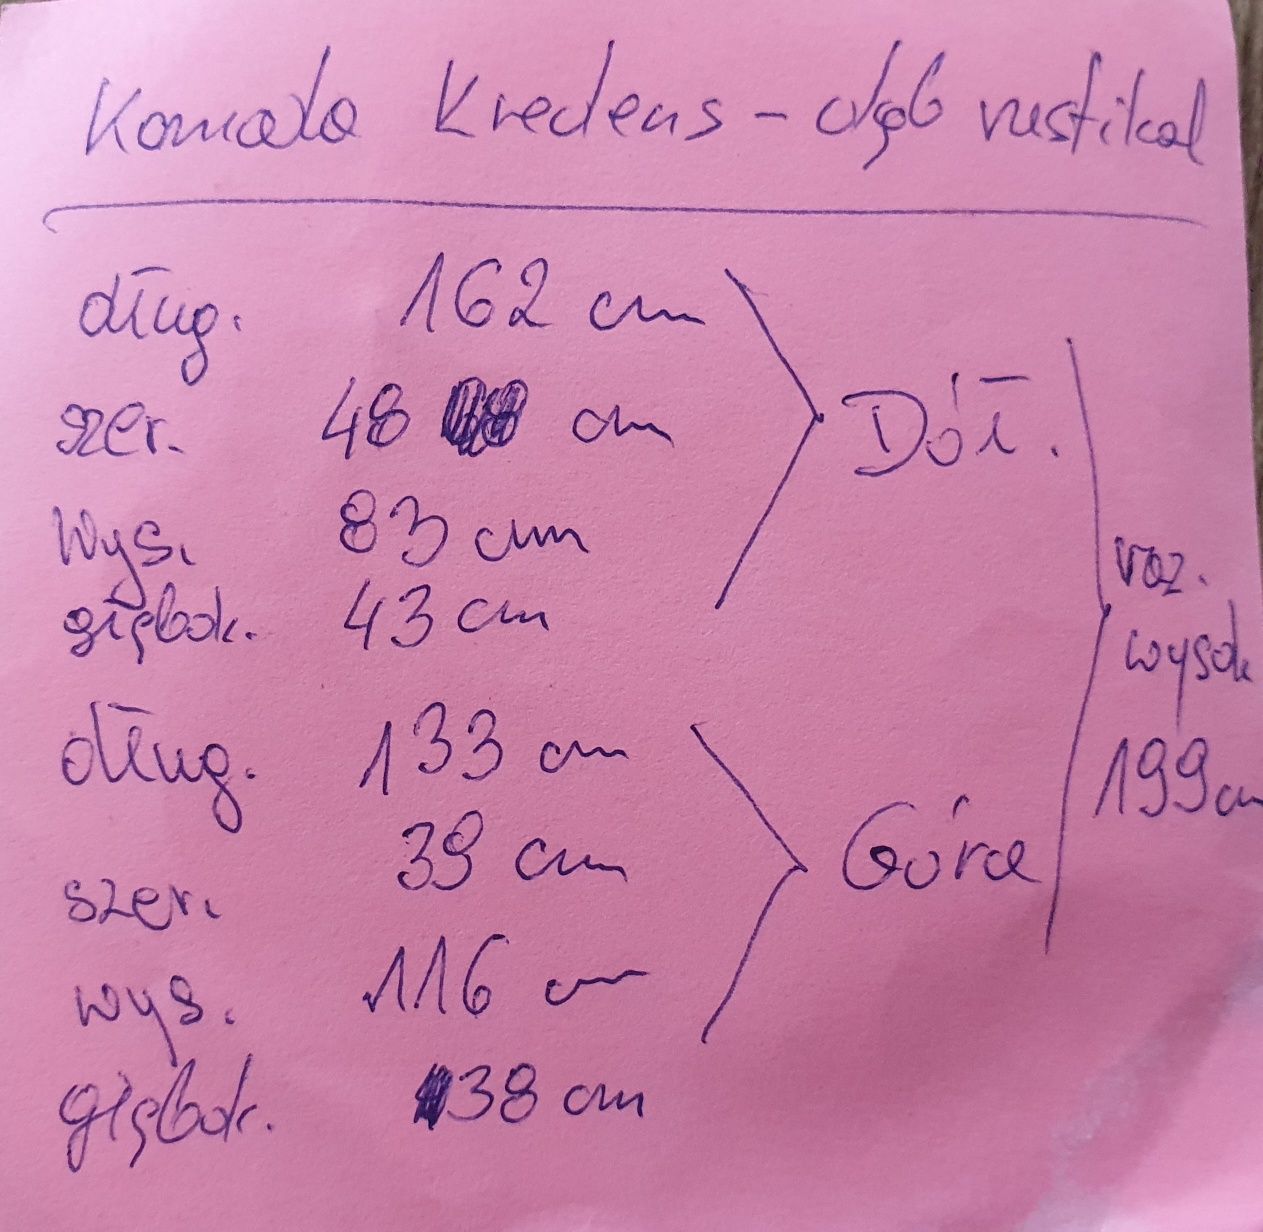 Komoda Kredens - dąb rustikal
dług. 162 cm
szer. 48 cm
Dół.
wys. 83 cm
głębok. 43 cm
dług. 133 cm
szer. 39 cm
Góra
wys. 116 cm
głębok. 38 cm
raz.
wysok
199 cm